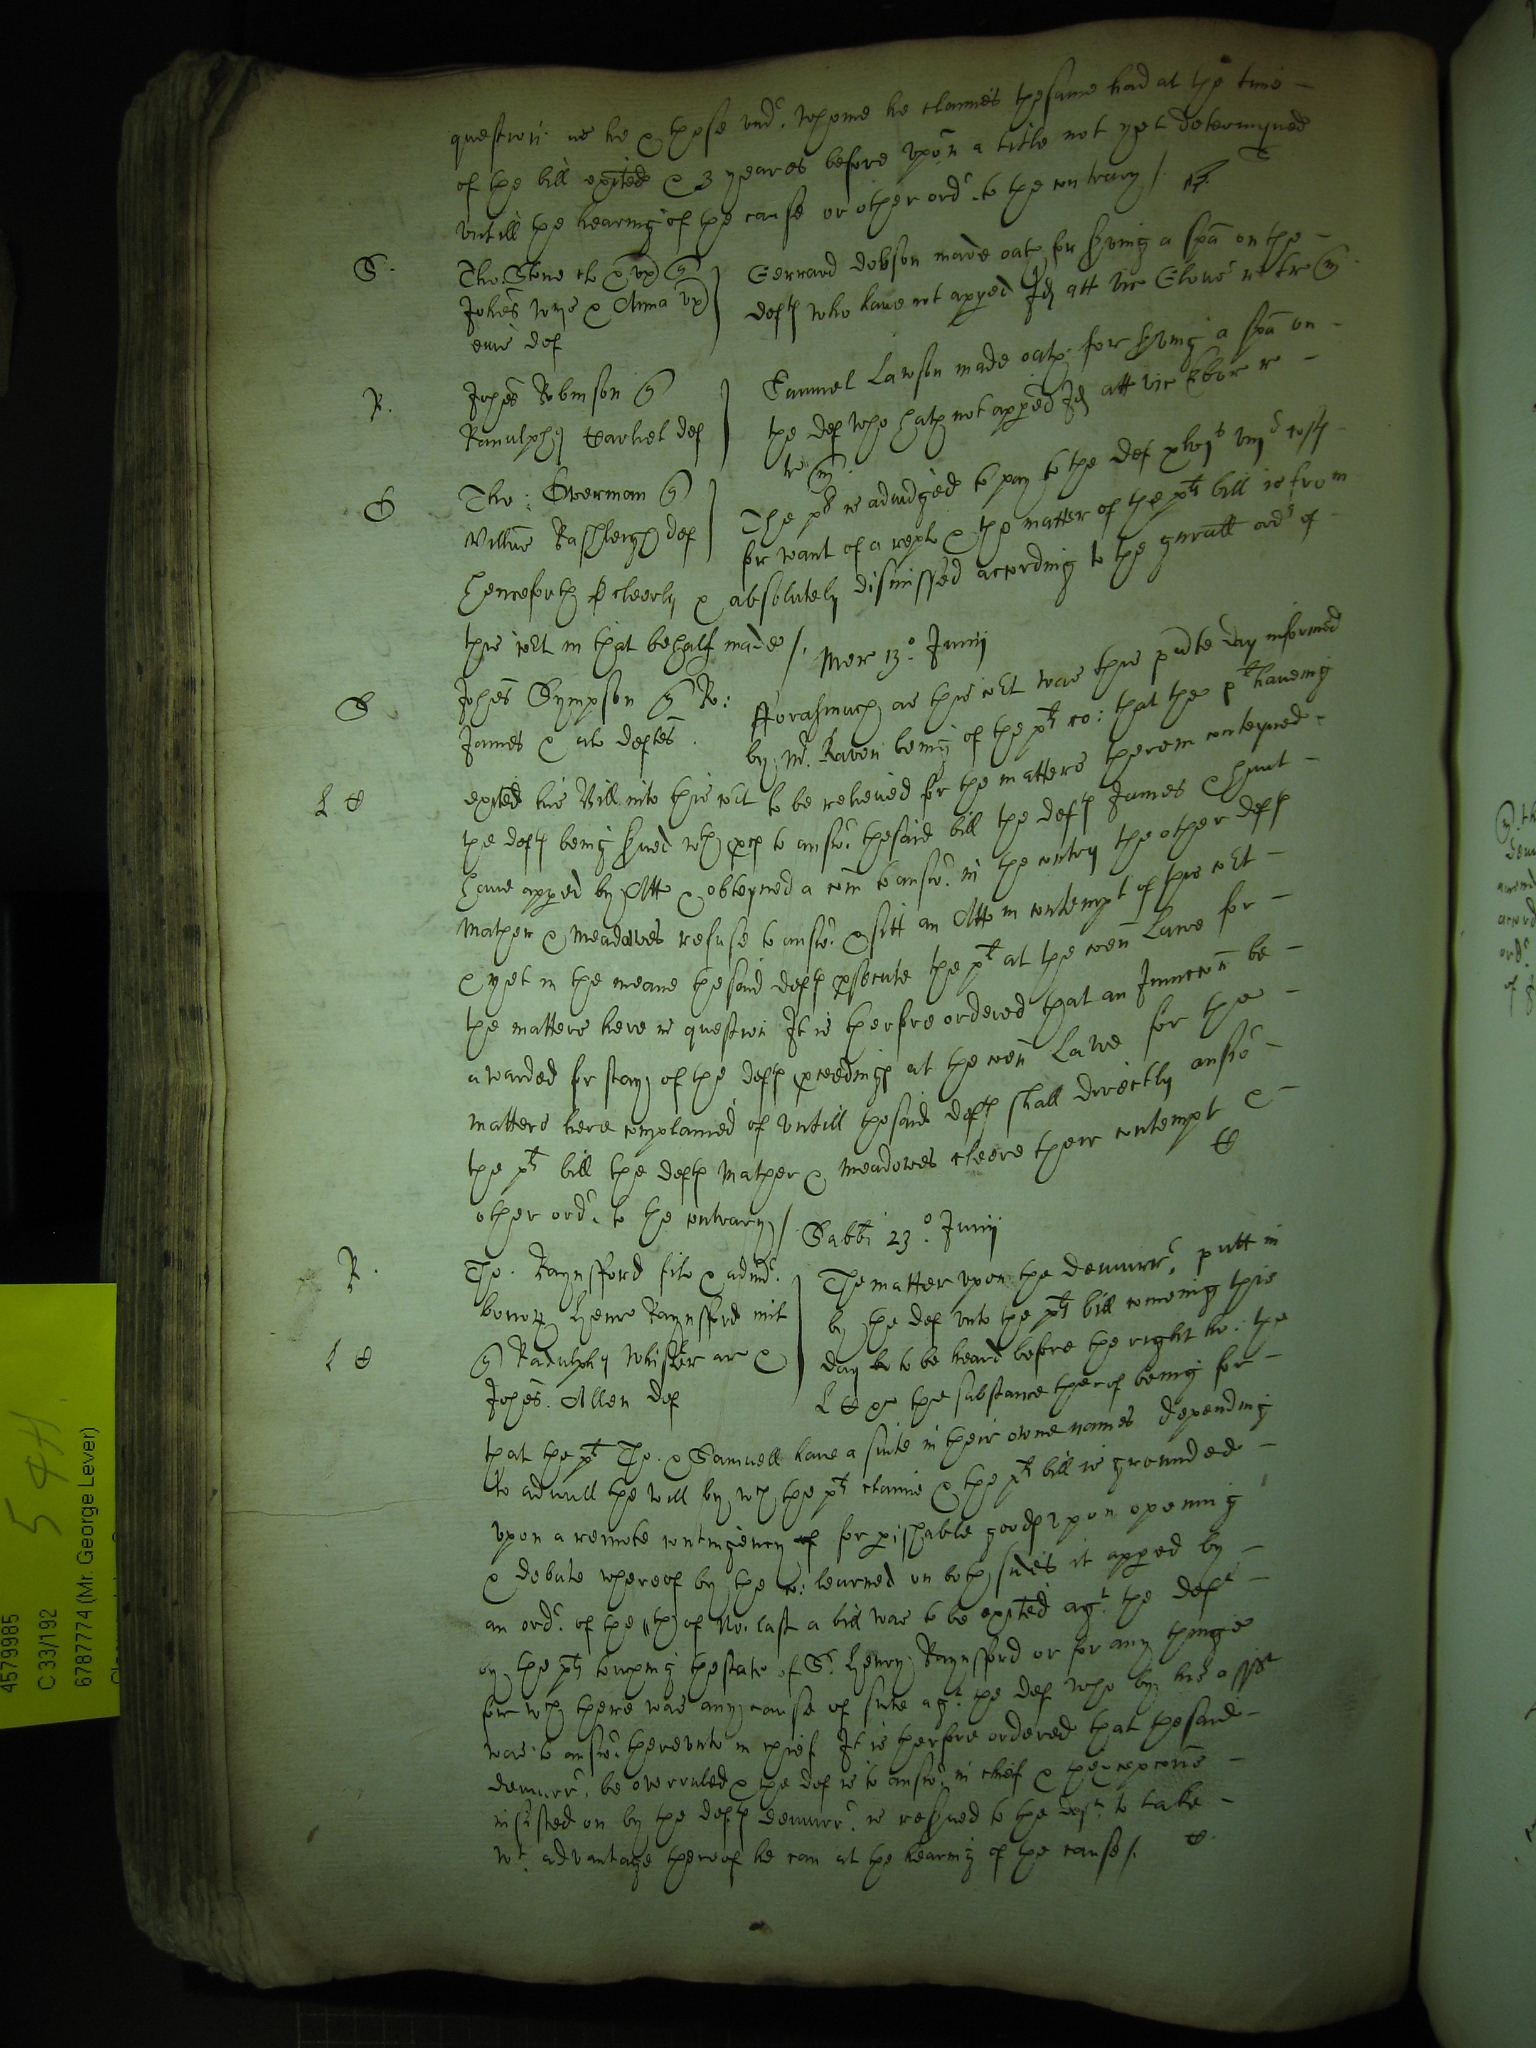 question as he & those und whome he claimes thesame had at the time
of the bill exited & 3 yeares before upon a title not yet determyned
untill the hearing of the cause or other ord to the contrary /.
S.
Tho. Stone & ux
Johes & Anna ux
eius def
Gerrard Dobson made oath for sving a spa on the
defts who have not apped Id att vic
R.
Johes Robinson
Ranulphus def
Samuel Lawson made oath for sving a spa on
the def who hath not apped Id att vic Ebor r
O
Tho: Overman
Willm Rashleigh def
The plt is adiudged to pay to the def costs
for want of a repl & the matter of the plts bill is from
henceforth cleerly & absolutely dismissed according to the gnrall ord of
this cort in that behalf made /.
Mer 13o. Junij
S
Johes Sympson Ro:
James & alo deftes.
fforasmuch as this cort was this pnte day informed
by Mr. Raven being of the plts co: that the plt haveing
L C
exited his Bill into this cort to be releived for the matters therein conteyned
the defts being sved wth pces to answ thesaid bill the defts James & Hunt
have apped by Att & obteyned a com to answ in the contry the other defts
Mather & Meadowes refuse to answ & sitt an Att in contempt of this cort
& yet in the meane thesaid defts psecute the plt at the coen Lawe for
the matters here in question It is therfore ordered that an Iniunccon be
awarded for stay of the defts pceedings at the coen Lawe for the
matters here complained of untill thesaid defts shall directly answ
the plts bill the defts Mather & Meadowes cleere their contempt &
other ord to the contrary /
Sabbi 23o. Junij
R.
Tho. Raynsford filo & admr
bonorum Henr Raynsford mil
L C
Radulphus Whistler ar &
Johes. Allen def
The matter upon the demurr putt in
by the def unto the plts bill comeing this
day to be heard before the right ho: the
L C the substance therof being for
that the plt Tho. & Samuell have a suite in their owne names depending
to adnull the will by wch the plts claime & the plts bill is grounded
upon a remote contingency for pishable goods upon opening
& debate whereof by the co: learned on both sides it apped by
an ord of the 11th of No. last a bill was to be exited agt the deft
by the plts touching thestate of Sr Henry Raynsford or for any thinge
for wch there was any cause of suite agt the def who by his asst
was to answ thereunto in chief It is therfore ordered that thesaid
demurr be overruled & the def is to answ in chief & thexcepcons
insisted on by the defts demurr is resved to the deft to take
wt advantage thereof he can at the hearing of the cause /.
4579985
C 33/192
6787774 (Mr. George Lever)